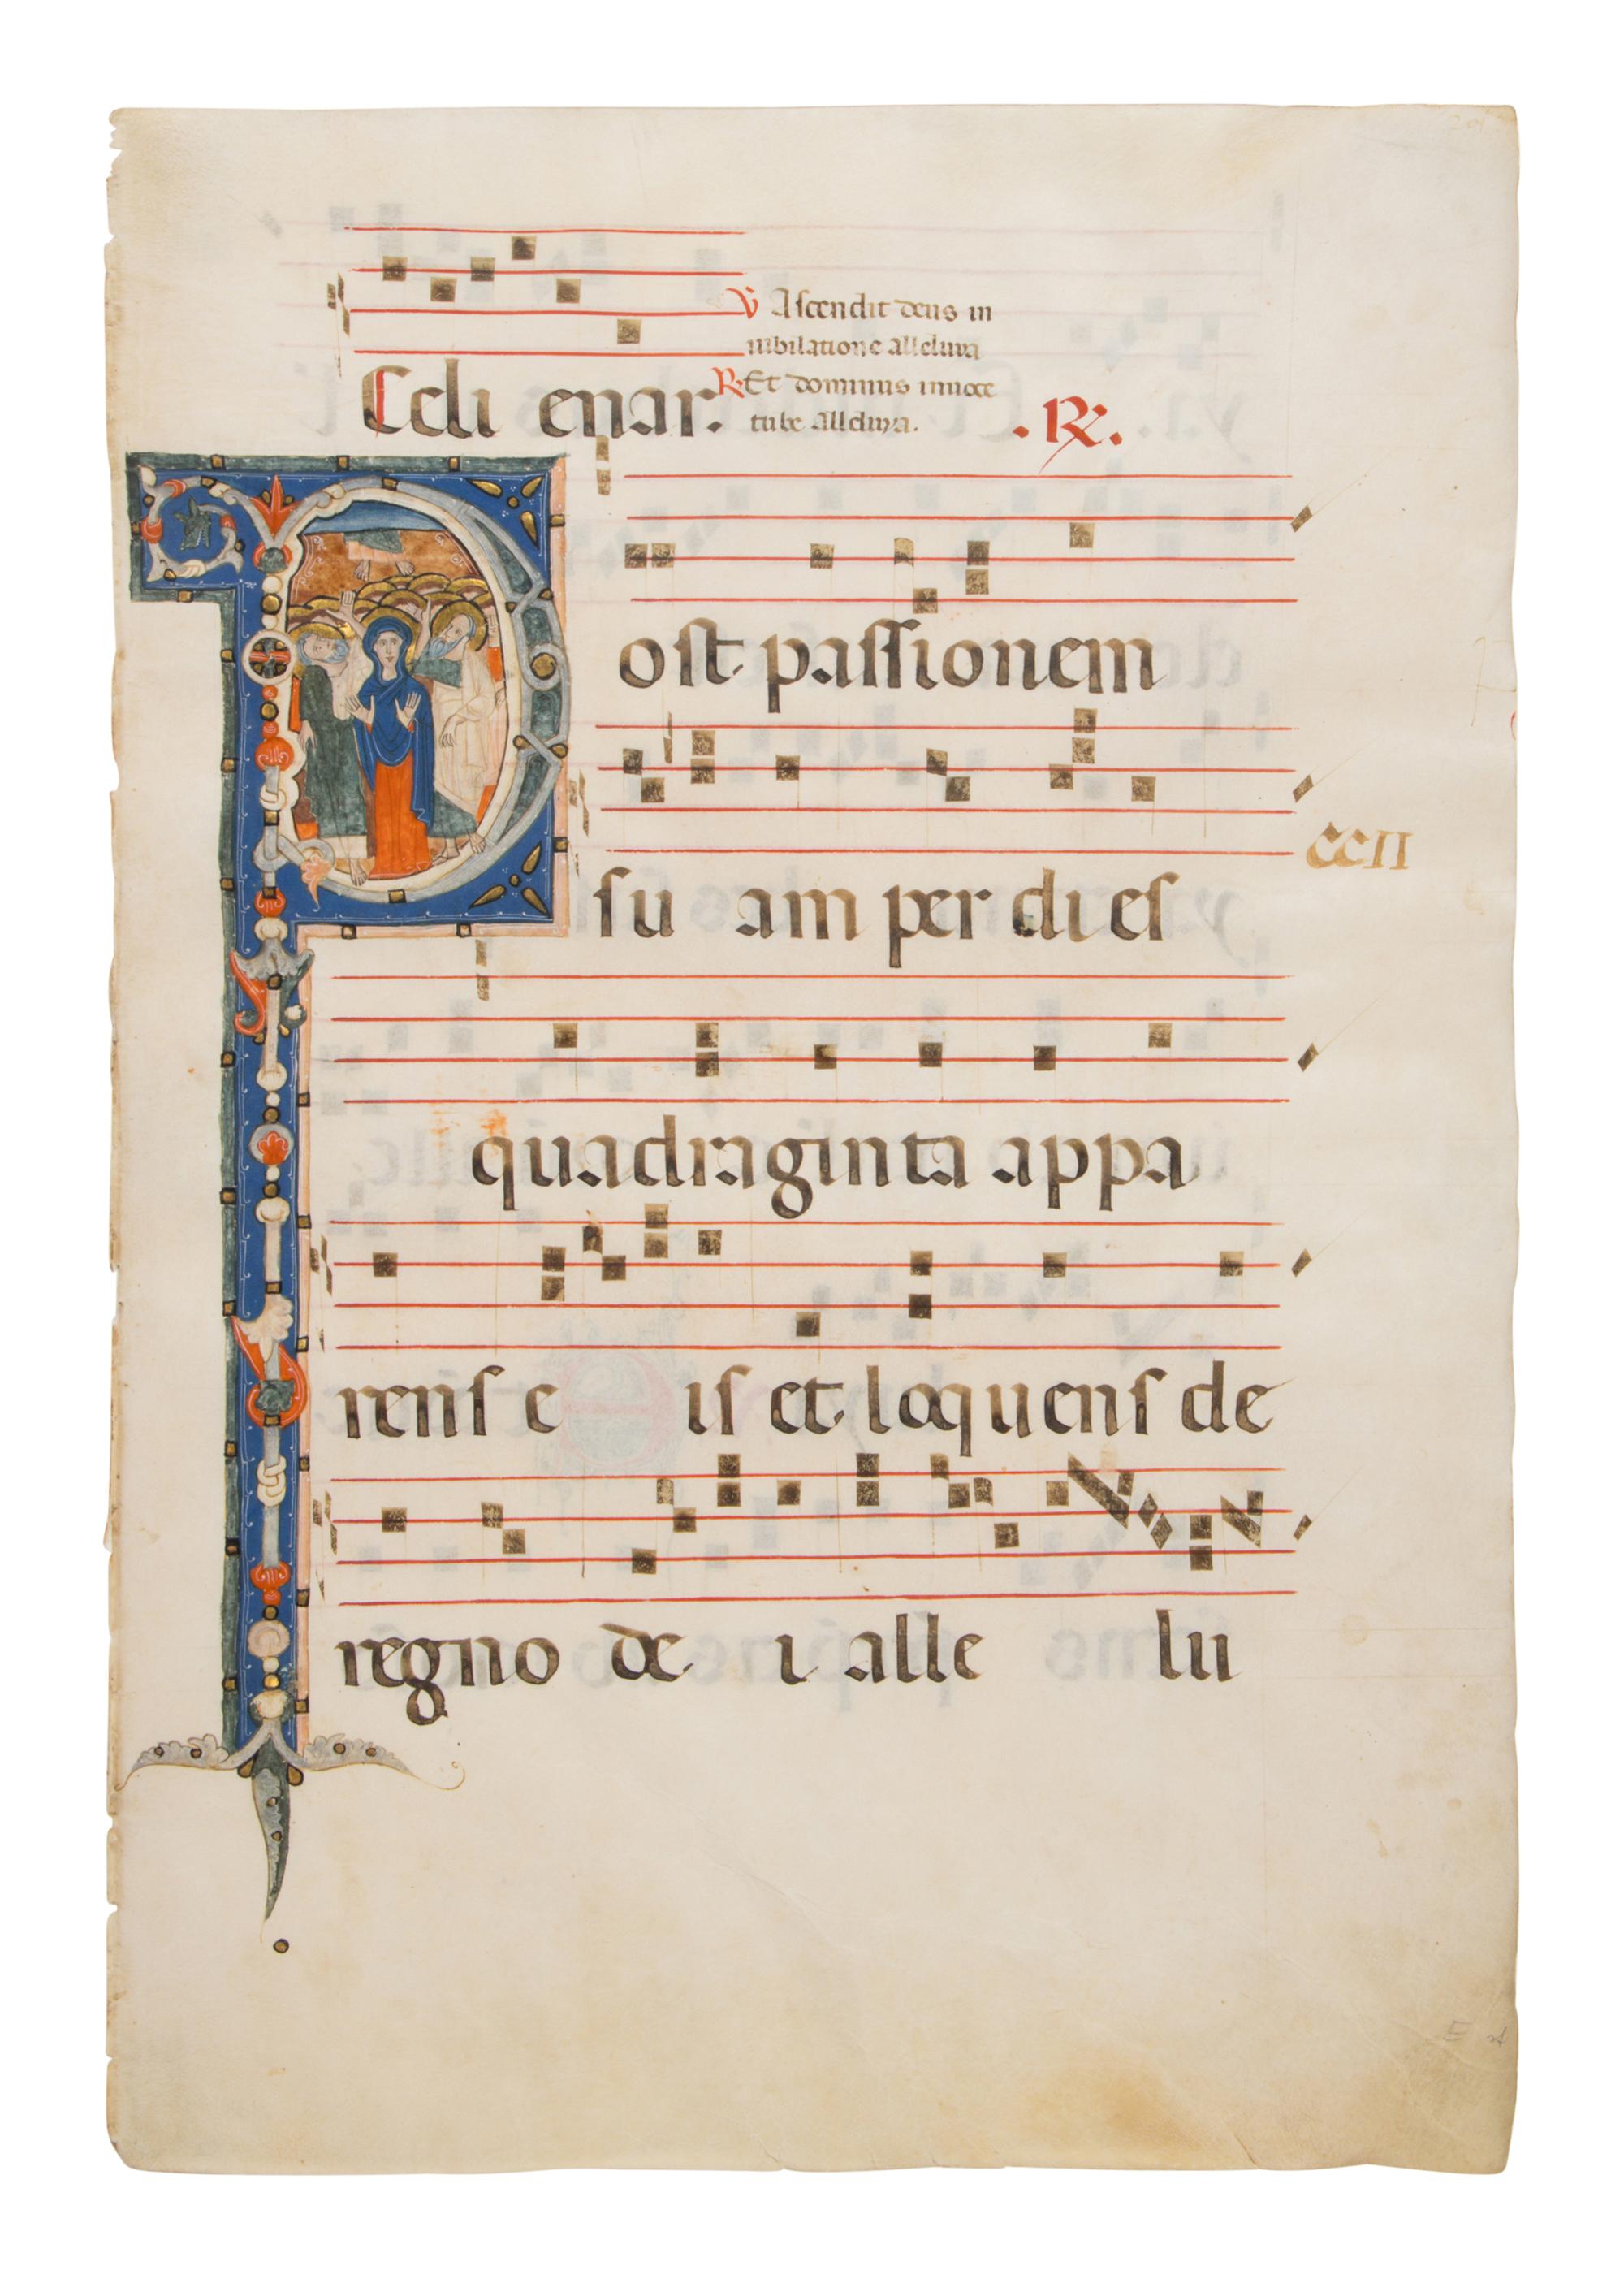 ℣ Ascendit deus in
iubilatione alleluya
Celi enar. ℟ Et dominus in uoce
tube alleluya. .℟.
Post passionem
CCII
su am per dies
quadraginta appa
rens e is et loquens de
regno de i alle lu